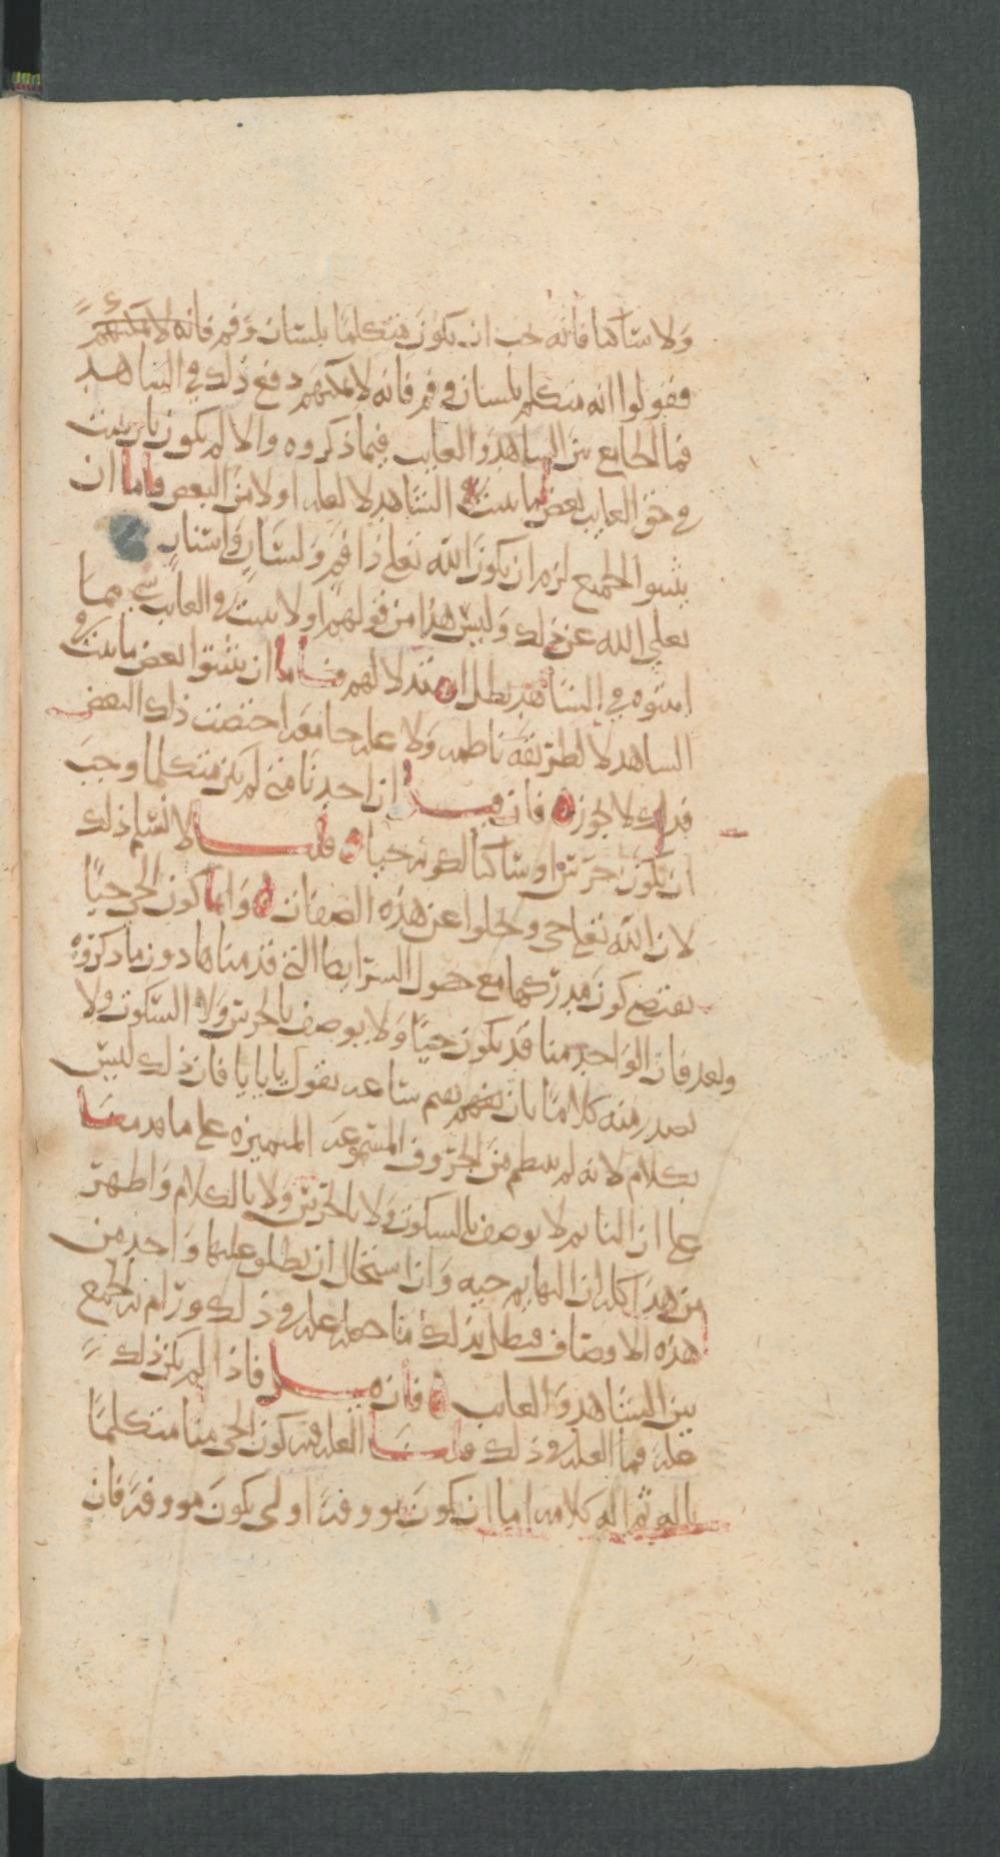 ولا ساكتا فانه يجب ان يكون متكلما بلسان وفم فانه لا يمكنهم
فقولوا انه متكلم بلسان في فم فانه لا يمكنهم دفع ذلك في الشاهد
فما الجامع بين الشاهد والغايب فيما ذكروه والا لم يكونا بان يثبت
في حق الغايب بعض ما يثبت في الشاهد لا لعلة اولا من البعض فاما ان
يثبتوا الجميع لزم ان يكون الله تعلى ذا فم ولسان واسنان
تعلى الله عن ذلك وليس هذا من قولهم او لا يثبت في الغايب شي مما
اثبتوه في الشاهد بطل استدلالهم فاما ان يثبتوا بعض ما يثبت في
الشاهد لا لطريقة ناظمة ولا علة جامعة اختصت ذلك البعض
فذلك لا يجوز فان قيل ان احدنا متى لم يكن متكلما وجب
ان يكون اخرس او ساكتا لكونه حيا قلنا لا نسلم ذلك
لان الله تعلى حي ويخلوا عن هذه الصفات وانما كون الحي حيا
يقتضي كونه مدركا مع حصول الشرايط التي قدمناها دون ما ذكروه
وبعد فان الواحد منا قد يكون حيا ولا يوصف بالخرس ولا السكوت ولا
يصدر منه كلاما بان نفهم ساعة يقول يا يا يا فان ذلك ليس
بكلام لانه لم ينتظم من الحروف المسموعة المتميزة على ما قدمنا
على ان النايم لا يوصف بالسكوت ولا بالخرس ولا بالكلام واظهر
من هذا كله ان البهايم حيه وان استحال ان يطلق عليها واحد من
هذه الاوصاف فبطل بذلك ما حملهم عليه في ذلك ورام به الجمع
بين الشاهد والغايب فان قيل فاذا لم يكن ذلك
علة فما العلة في ذلك قلنا العلة في كون الحي منا متكلما
بالة ثم الة كلامه اما ان يكون مووفة او لا يكون مووفة فان